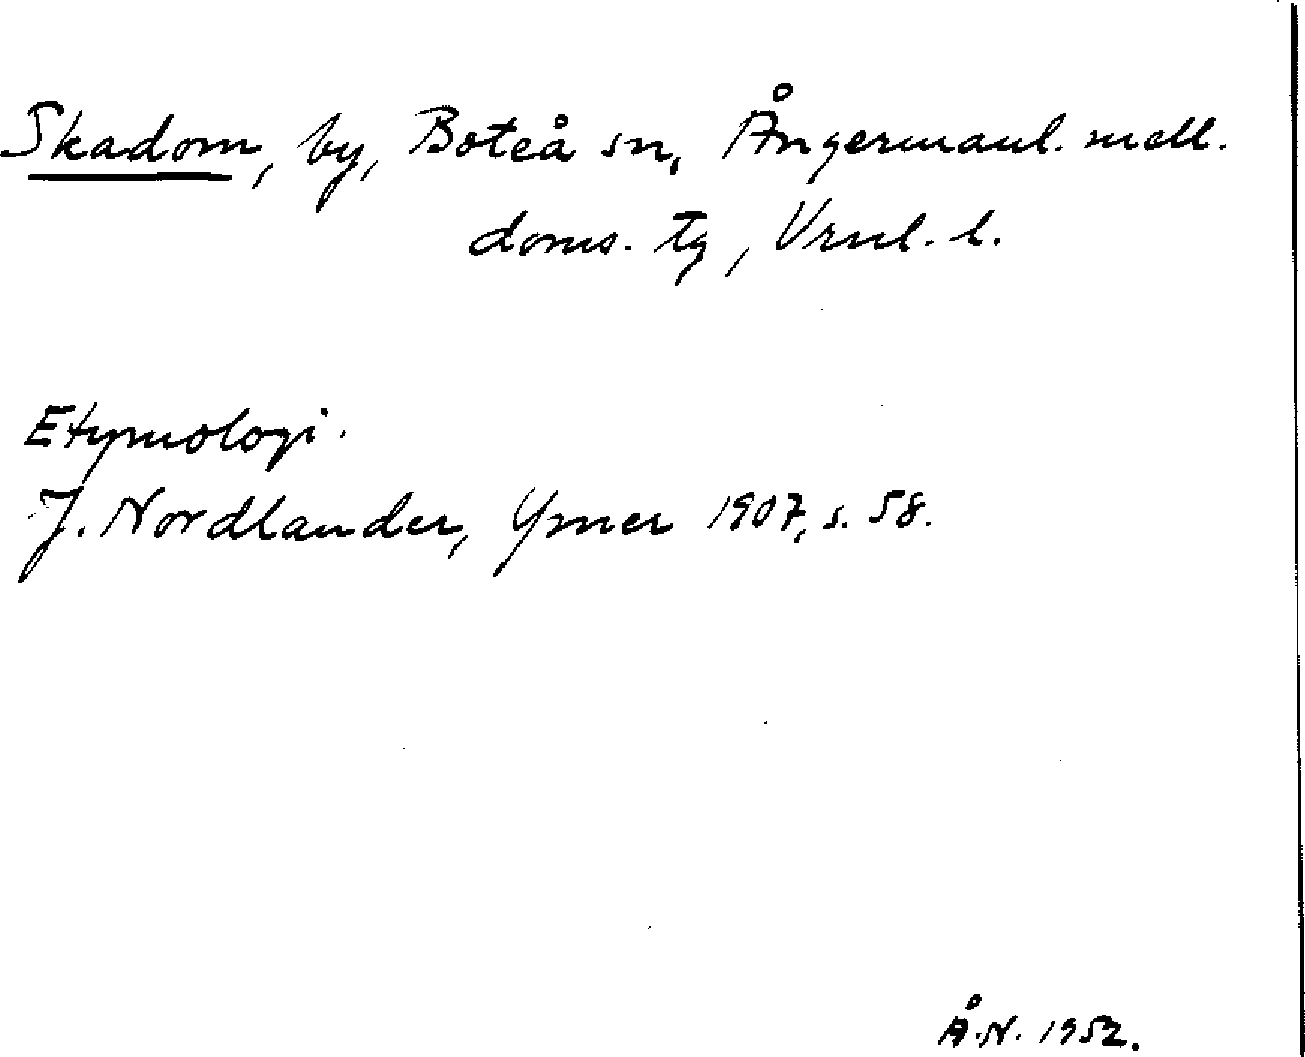 Skadom, by, Boteå sn, Ångermanl. mell.
doms. tg, Vrnl. l.
Etymologi.
J. Nordlander, Ymer 1907, s. 58.
Å.N. 1952.